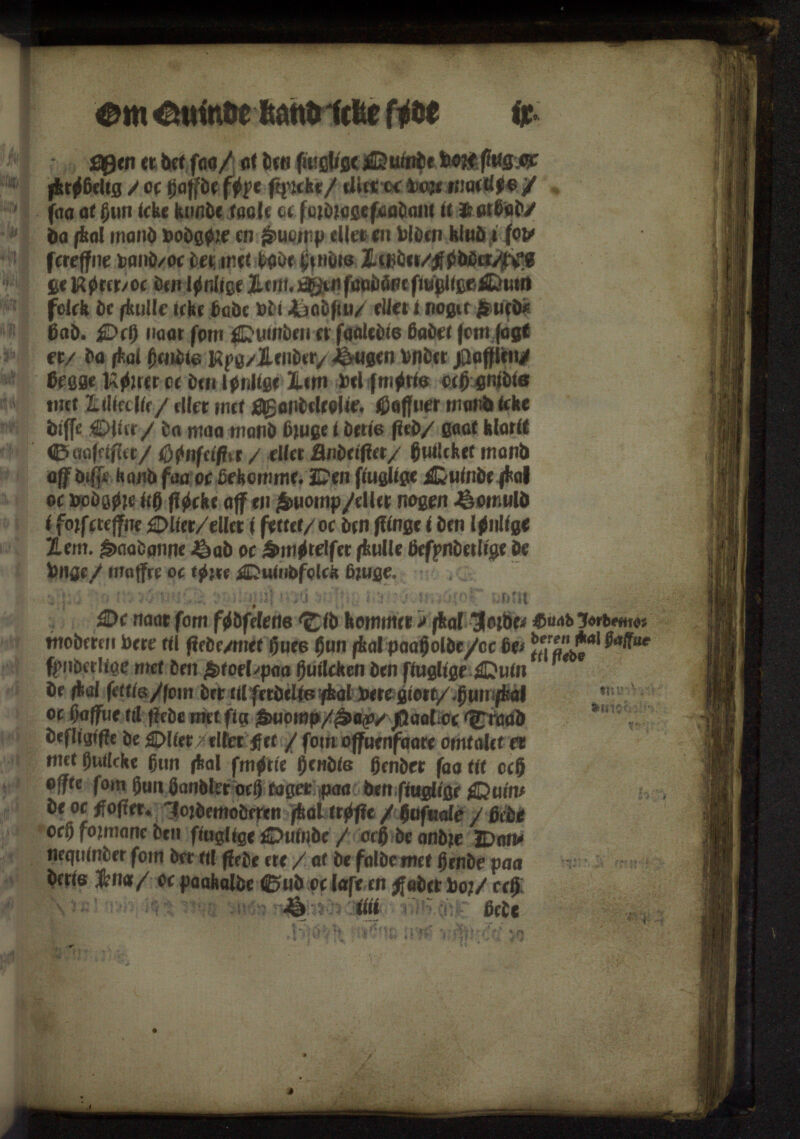 Om Quinde kand icke føde ix.
Men er det saa/ at den siuglige Quinde vore siug oc
skrøbelig / oc haffde søye styrcke/ eller oc vore
saa at hun icke kunde taale oc fordragesaadant it
da skal mand vodgøre en Suomp eller en vlden klud i for
screffne vand/oc der met bode hendis Lender/
ge Kører/oc den lønlige Lem. Men saadane siuglige Quin
folck de skulle icke bade vdi Badstu/ eller i noget
bad. Och naar som Quinden er saaledis badet som sagt
er/ da skal hendis Ryg/Lender, Bugen vnder Nafflen/
begge Kører oc den lønlige Lem vel smøris och gnidis
met Lillieolie/ eller met Mandelolie. Haffuer mand icke
disse Olier/ da maa mand bruge i deris sted/ gaat klarit
Gaasefister/ Hønsefister / eller Andefister/ huilcket mand
aff disse kand faa oc bekomme. Den siuglige Quinde skal
oc vodgøre ith støcke aff en Suomp/eller nogen Bomuld
i forscreffne Olier/eller i fettet/ oc den stinge i den lønlige
Lem. Saadanne Bad oc Smørelser skulle besynderlige de
vnge/ maffre oc tørre Quindfolck bruge.
De naar som fødselens Tid kommer / skal Jorde-
moderen vere til stede/met hues hun skal paaholde/oc be-
synderlige met den Stoel/paa huilcken den siuglige Quin
de skal settis/som der til serdelis skal vere giort/ hun skal
oc haffue til stede met sig Suomp/Sax/ Naal oc Traad
desligiste de Olier / eller Fet / som offuenfaare omtalet er
met huilcke hun skal smørie hendis hender saa tit och
offte som hun handler och tager paa den siuglige Quin-
de oc Foster. Jordemoderen skal trøste / husuale / bede
och formane den siuglige Quinde / och de andre Dan-
nequinder som der til stede ere / at de falde met hende paa
deris Knæ/ oc paakalde Gud oc læse en Fader vor/ och
B iiii bede
Huad Jordemo-
deren skal haffue
til stede